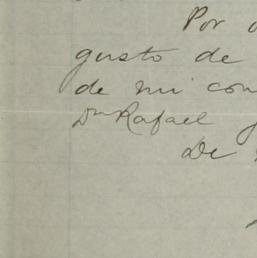 Por
gusto de
de mi con
Dn Rafael
De